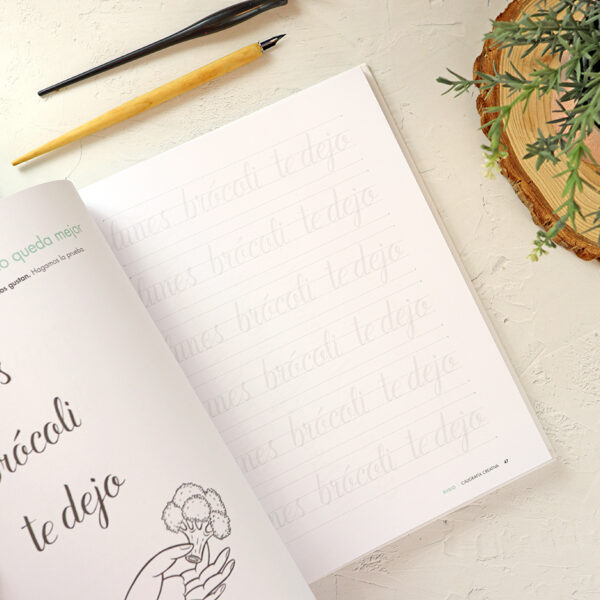 o queda mejor
os gustan. Hagamos la prueba
s
rócoli
te dejo
lunes brócoli te dejo
lunes brócoli te dejo
lunes brócoli te dejo
unes brócoli te dejo
unes brócoli te dejo
unes brócoli te dejo
RUBIO CALIGRAFÍA CREATIVA 47